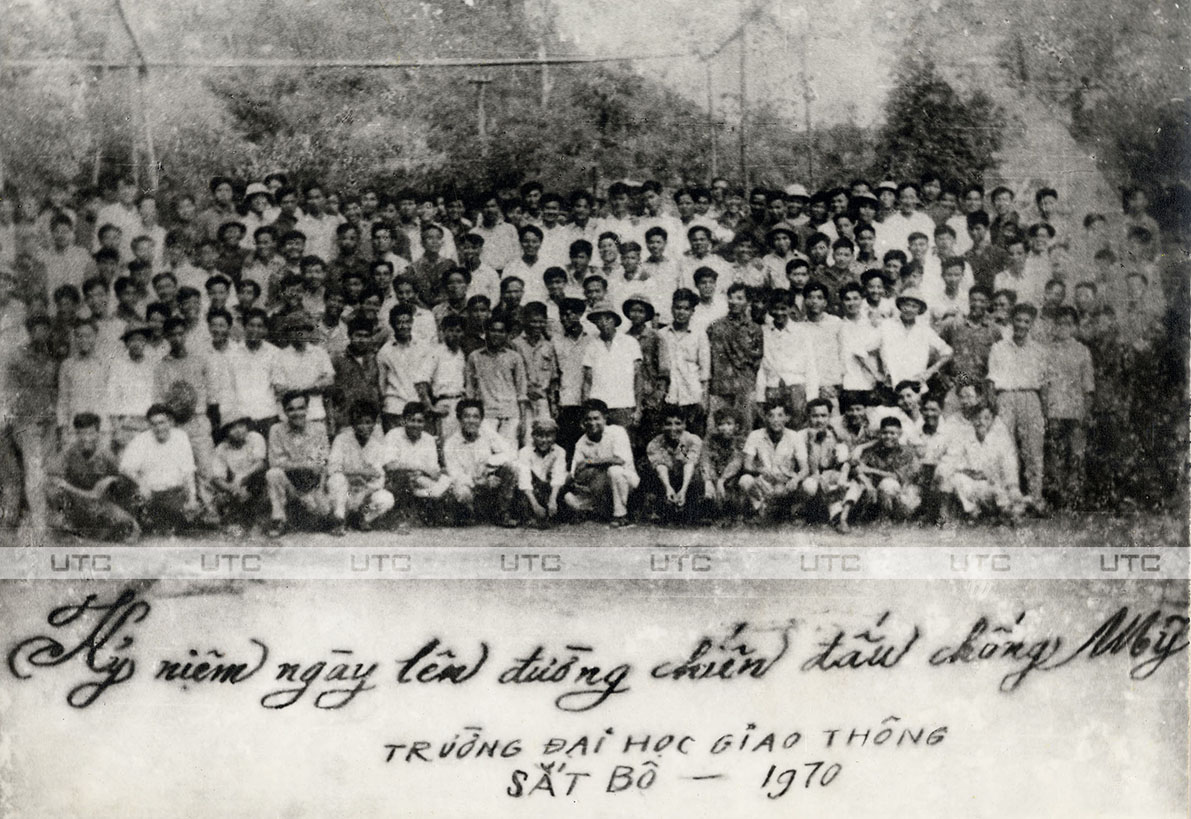 UTC UTC UTC UTC UTC UTC UTC UTC
Kỷ niệm ngày lên đường chiến đấu chống Mỹ
TRƯỜNG ĐẠI HỌC GIAO THÔNG
SẮT BỘ — 1970